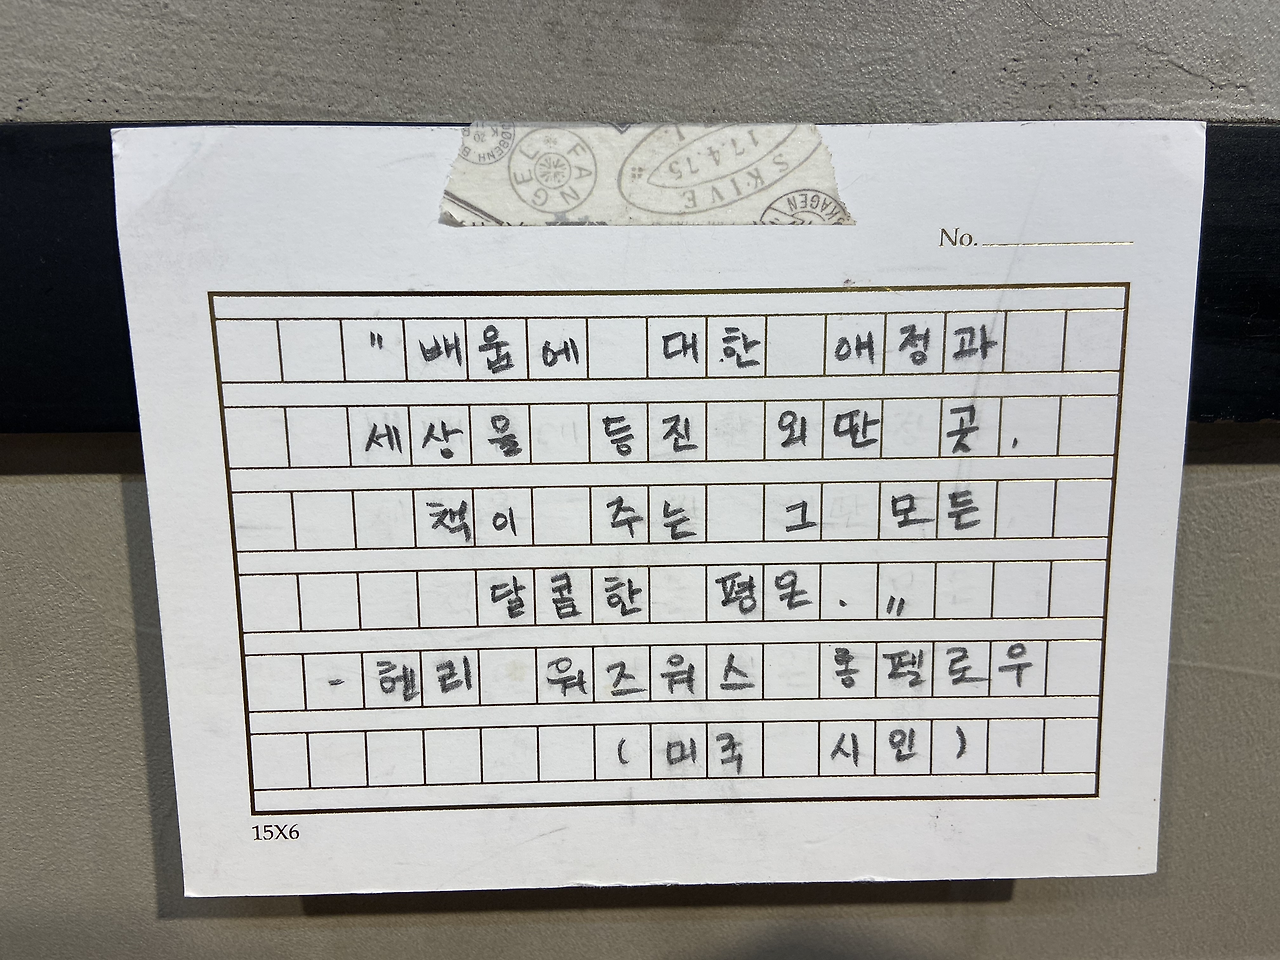 FANGEL
SKIVE
17.4.75
SKAGEN
No.
"배움에 대한 애정과
세상을 등진 외딴 곳,
책이 주는 그 모든
달콤한 평온."
- 헨리 워즈워스 롱펠로우
(미국 시인)
15X6